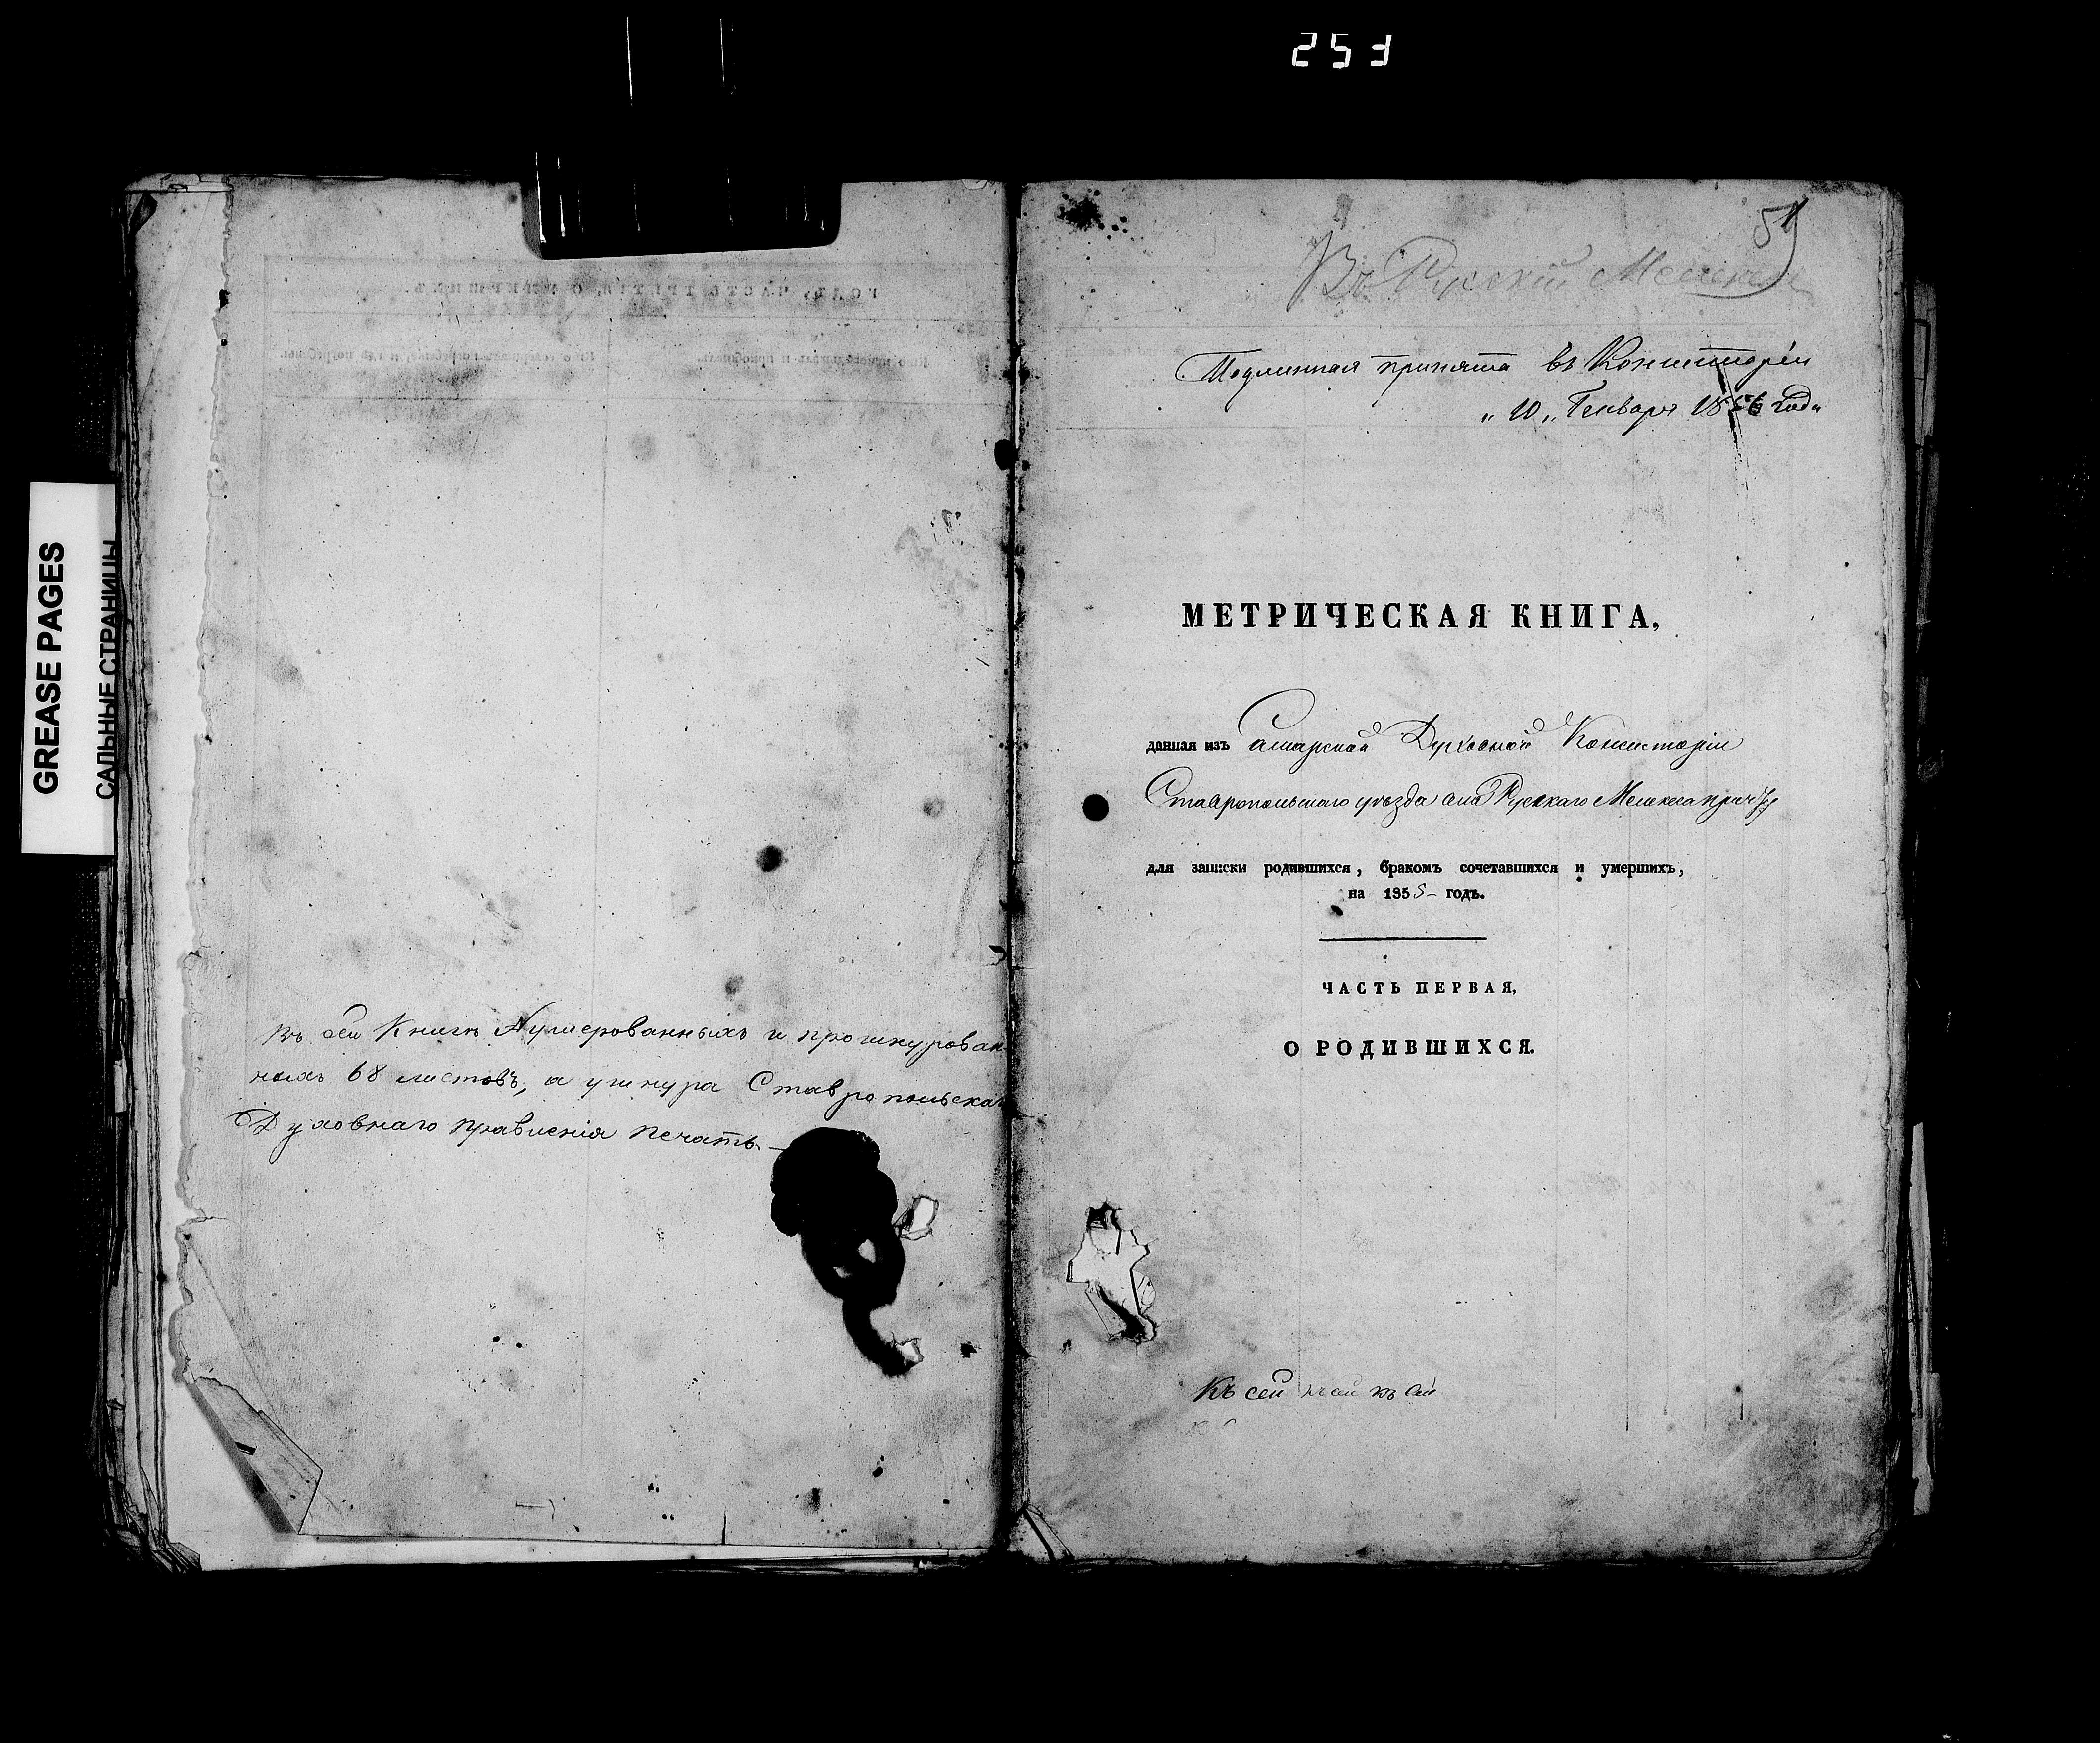 253
GREASE PAGES
САЛЬНЫЕ СТРАНИЦЫ
Въ сей Книгѣ Нумерованныхъ и прошнурован-
ныхъ 68 листовъ, а у шнура Ставропольскаго
Духовнаго правленія печать.
Въ Русскій Мелекес
Подлинная принята въ Консисторіи
„10„ Генваря 1856 года
МЕТРИЧЕСКАЯ КНИГА,
данная изъ Самарской Духовной Консисторіи
Ставропольскаго уѣзда села Русскаго Мелекеса причту
для записки родившихся, бракомъ сочетавшихся и умершихъ,
на 1855 годъ.
ЧАСТЬ ПЕРВАЯ,
О РОДИВШИХСЯ.
Къ сей къ сей къ сей